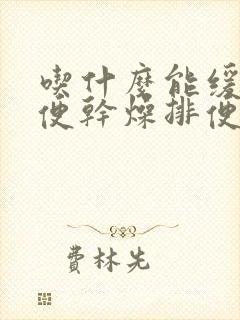 喫什麼能緩
便幹燥排便
費林先